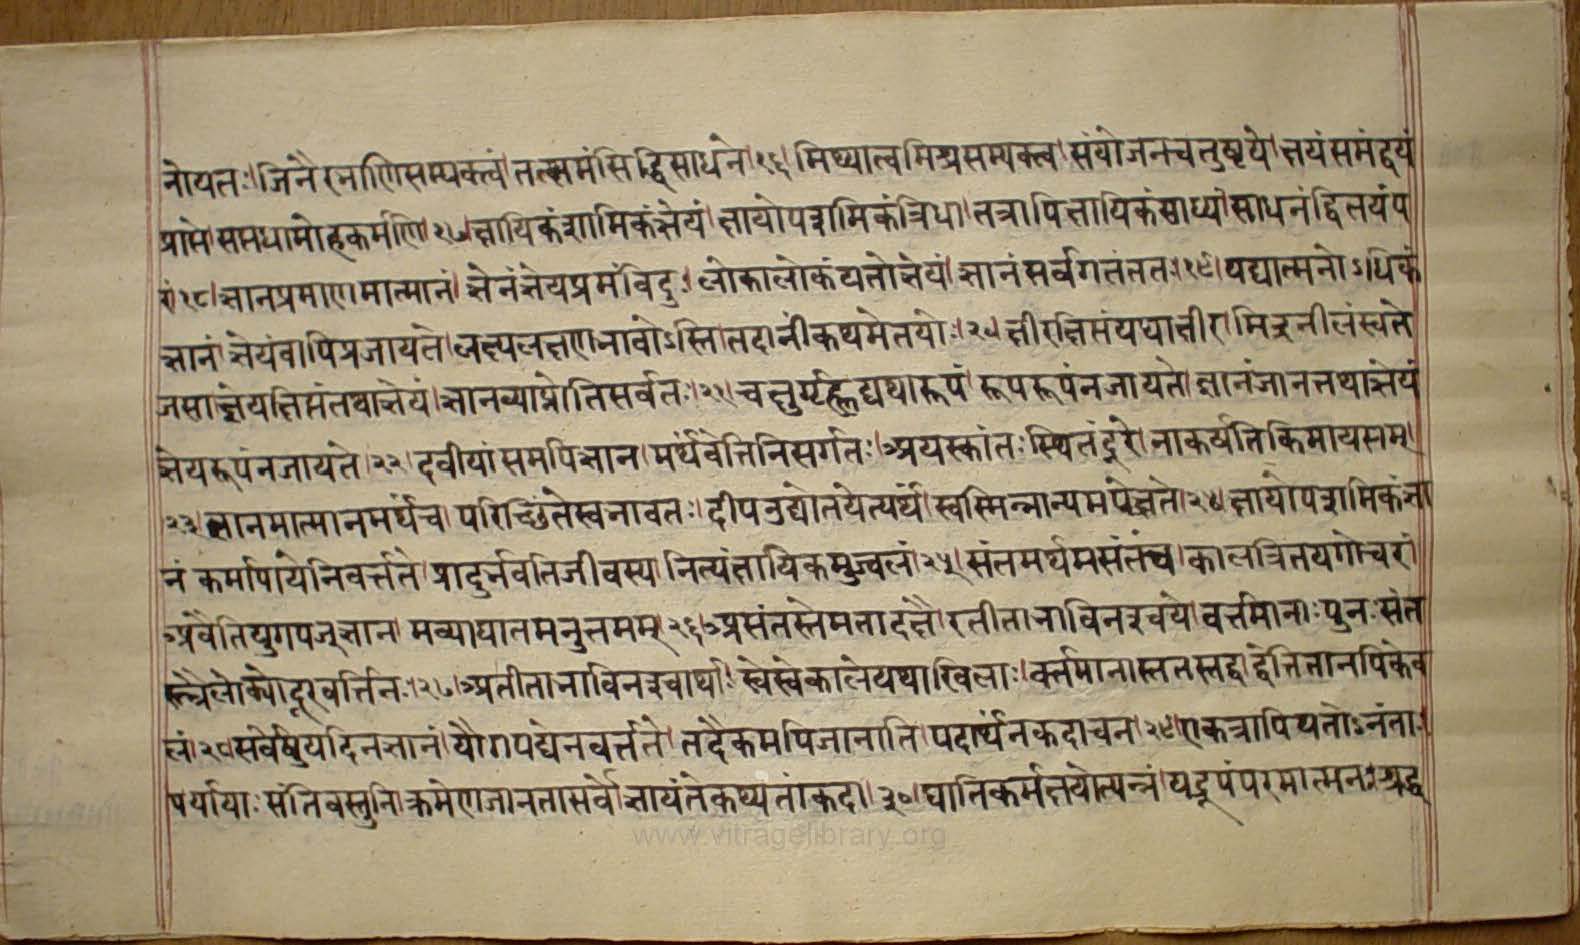 नोयतः।जिनैरनाणिसम्यक्त्वं।तत्क्षमंसिद्धिसाधने१६।मिथ्यात्वमिश्रसम्यक्त्व।संयोजनचतुष्टये।क्षयंसमंद्वयं
प्राप्ते।सप्तधामोहकर्मणि।१७।क्षायिकंशामिकंज्ञेयं।क्षायोपशमिकंत्रिधा।तत्रापिक्षायिकंसाध्यं।साधनंद्वितयंप
रं।१८।ज्ञानप्रमाणमात्मानं।ज्ञेनंज्ञेयप्रमंविदुः।लोकालोकंयतोज्ञेयं।ज्ञानंसर्वगतंततः।१९।यद्यात्मनोऽधिकं
ज्ञानं।ज्ञेयंवापिप्रजायते।लक्ष्यलक्षणभावोऽस्ति।तदानींकथमेतयोः।२०।क्षीरक्षिप्तंयथाक्षीर।मिंद्रनीलंस्वते
जसा।ज्ञेयक्षिप्तंतथाज्ञेयं।ज्ञानव्याप्नोतिसर्वतः।२१।चक्षुर्गृह्णद्यथारूपं।रूपरूपंनजायते।ज्ञानंजानत्तथाज्ञेयं
ज्ञेयरूपंनजायते।२२।दवीयांसमपिज्ञान।मर्थंवेत्तिनिसर्गतः।अयस्कांतःस्थितंदूरे।नाकर्षतिकिमायसम्।
२३।ज्ञानमात्मानमर्थंच।परिच्छिंतेस्वभावतः।दीपउद्योतयेत्यर्थं।स्वस्मिन्नान्यमपेक्षते।२४।क्षायोपशमिकंज्ञा
नं।कर्मापायेनिवर्त्तते।प्रादुर्भवतिजीवस्य।नित्यंक्षायिकमुज्वलं।२५।संतमर्थमसंतंच।कालत्रितयगोचरं।
अवैतियुगपज्ज्ञान।मव्याघातमनुत्तमम्।२६।असंतस्तेमतादक्षै।रतीताभाविनश्चये।वर्त्तमानाःपुनःसंत
स्त्रैलोक्योदरवर्त्तिनः।२७।अतीताभाविनश्चार्थाः।स्वेस्वेकालेयथाखिलाः।वर्त्तमानास्ततस्तद्वद्वेत्तितानपिकेव
लं।२८।सर्वेषुयदिनज्ञानं।यौगपद्येनवर्त्तते।तदैकमपिजानाति।पदार्थंनकदाचन।२९।एकत्रापियतोऽनंताः
पर्यायाःसंतिवस्तुनि।क्रमेणजानतासर्वे।ज्ञायंतेकथ्यतांकदा।३०।घातिकर्मक्षयोत्पन्नं।यद्रूपंपरमात्मनः।श्रद्ध
www.vitragelibrary.org